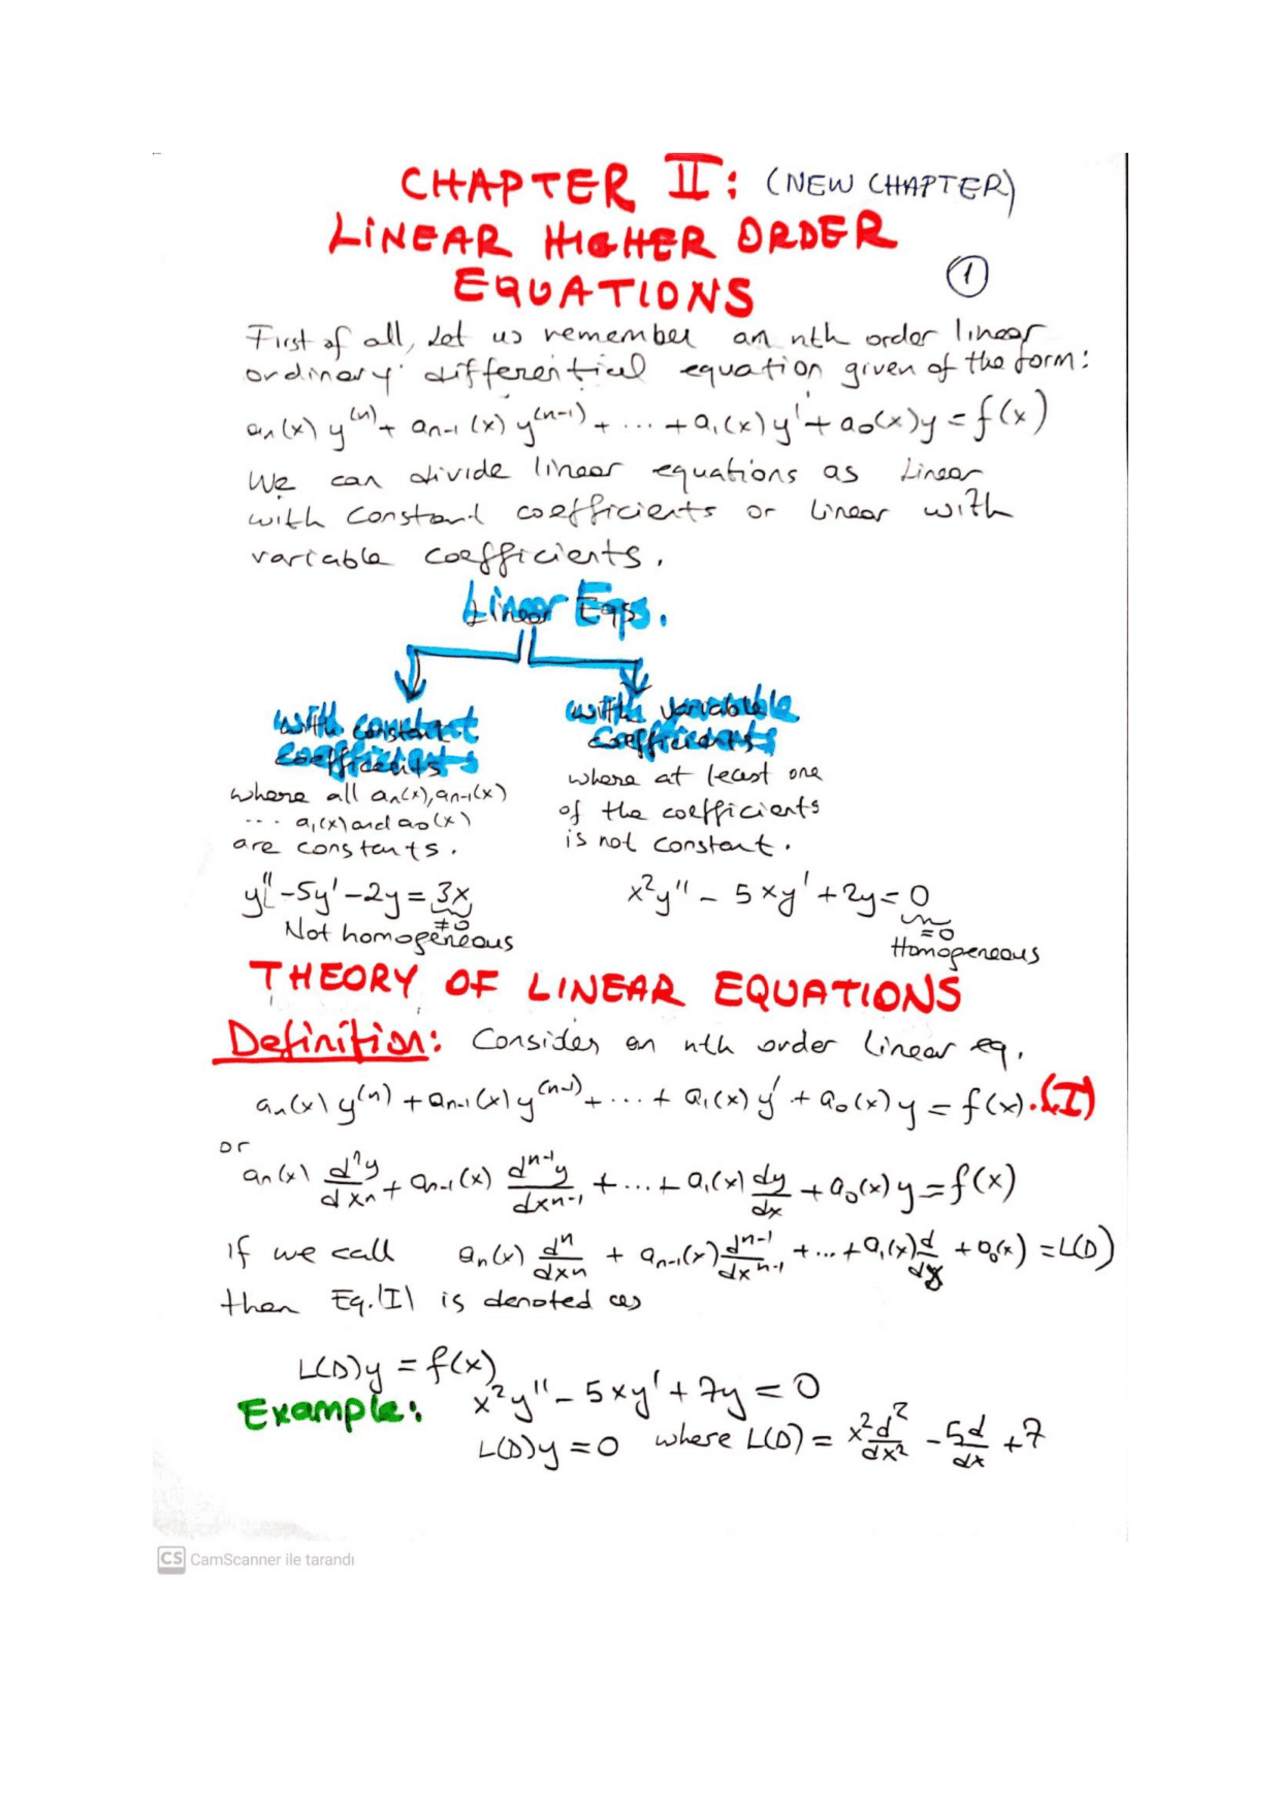 CHAPTER II: (NEW CHAPTER)
LINEAR HIGHER ORDER
EQUATIONS
1
First of all, Let us remember an nth order linear
ordinary differential equation given of the form:
aₙ(x) y⁽ⁿ⁾ + aₙ₋₁(x) y⁽ⁿ⁻¹⁾ + ... + a₁(x) y' + a₀(x)y = f(x)
We can divide linear equations as Linear
with constant coefficients or linear with
variable coefficients.
Linear Eqs.
with constant
coefficients
where all aₙ(x), aₙ₋₁(x)
... a₁(x) and a₀(x)
are constants.
y'' - 5y' - 2y = 3x
≠0
Not homogeneous
with variable
coefficients
where at least one
of the coefficients
is not constant.
x²y'' - 5xy' + 2y = 0
=0
Homogeneous
THEORY OF LINEAR EQUATIONS
Definition: Consider an nth order linear eq.
aₙ(x) y⁽ⁿ⁾ + aₙ₋₁(x) y⁽ⁿ⁻¹⁾ + ... + a₁(x) y' + a₀(x) y = f(x). (I)
or
aₙ(x) dⁿy/dxⁿ + aₙ₋₁(x) dⁿ⁻¹y/dxⁿ⁻¹ + ... + a₁(x) dy/dx + a₀(x) y = f(x)
If we call aₙ(x) dⁿ/dxⁿ + aₙ₋₁(x) dⁿ⁻¹/dxⁿ⁻¹ + ... + a₁(x) d/dx + a₀(x) = L(D)
then Eq.(I) is denoted as
L(D)y = f(x)
Example: x²y'' - 5xy' + 7y = 0
L(D)y = 0 where L(D) = x²d²/dx² - 5d/dx + 7
CS CamScanner ile tarandı